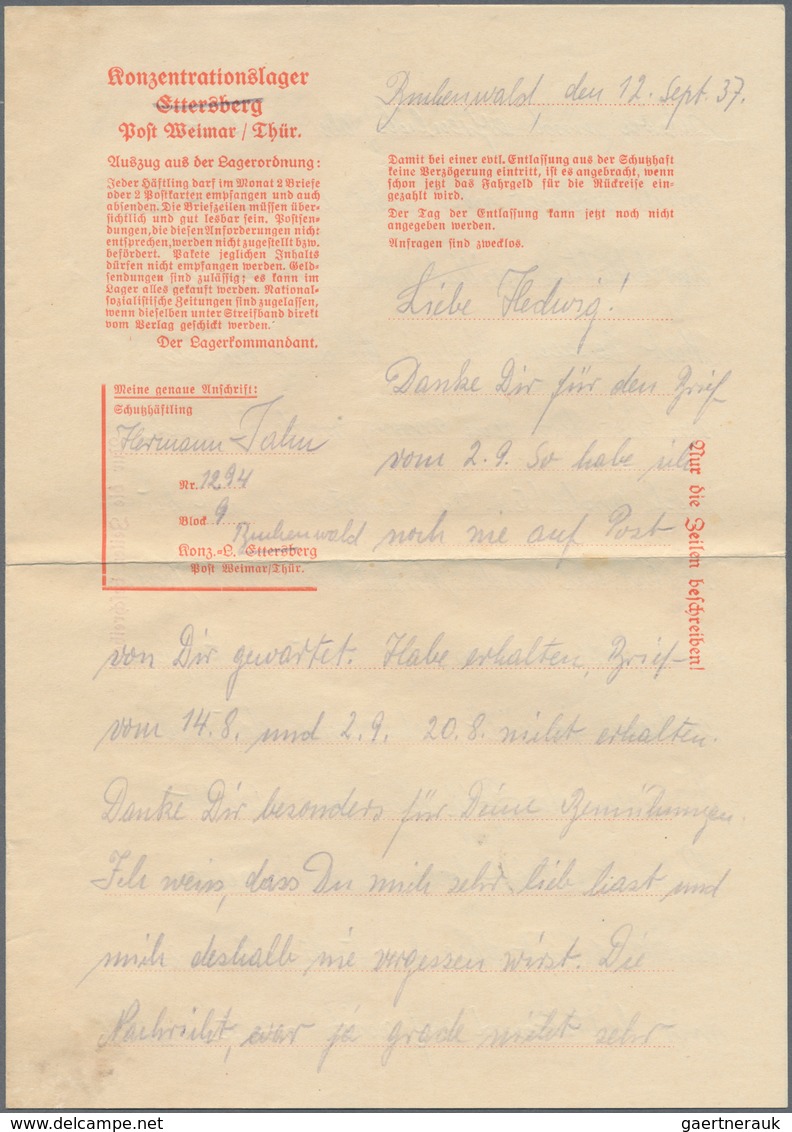 Konzentrationslager
Ettersberg
Post Weimar / Thür.
Auszug aus der Lagerordnung:
Jeder Häftling darf im Monat 2 Briefe
oder 2 Postkarten empfangen und auch
absenden. Die Briefzeilen müssen über-
sichtlich und gut lesbar sein. Postsen-
dungen, die diesen Anforderungen nicht
entsprechen, werden nicht zugestellt bzw.
befördert. Pakete jeglichen Inhalts
dürfen nicht empfangen werden. Geld-
sendungen sind zulässig; es kann im
Lager alles gekauft werden. National-
sozialistische Zeitungen sind zugelassen,
wenn dieselben unter Streifband direkt
vom Verlag geschickt werden.
Der Lagerkommandant.
Meine genaue Anschrift:
Schutzhäftling
Hermann
Nr. 1294
Block 9
Buchenwald
Konz.-L. Ettersberg
Post Weimar/Thür.
Buchenwald, den 12. Sept. 37.
Damit bei einer evtl. Entlassung aus der Schutzhaft
keine Verzögerung eintritt, ist es angebracht, wenn
schon jetzt das Fahrgeld für die Rückreise ein-
gezahlt wird.
Der Tag der Entlassung kann jetzt noch nicht
angegeben werden.
Anfragen sind zwecklos.
Liebe Hedwig!
Danke Dir für den Brief
vom 2.9. So habe ich
noch nie auf Post
Nur die Zeilen beschreiben!
von Dir gewartet. Habe erhalten, Brief
vom 14.8. und 2.9. 20.8. nicht erhalten.
Danke Dir besonders für Deine Bemühungen.
Ich weiss, dass Du mich sehr lieb hast und
mich deshalb nie vergessen wirst. Die
Nachricht, war ja grade nicht sehr
gaertnerauk
gaertnerauk.com